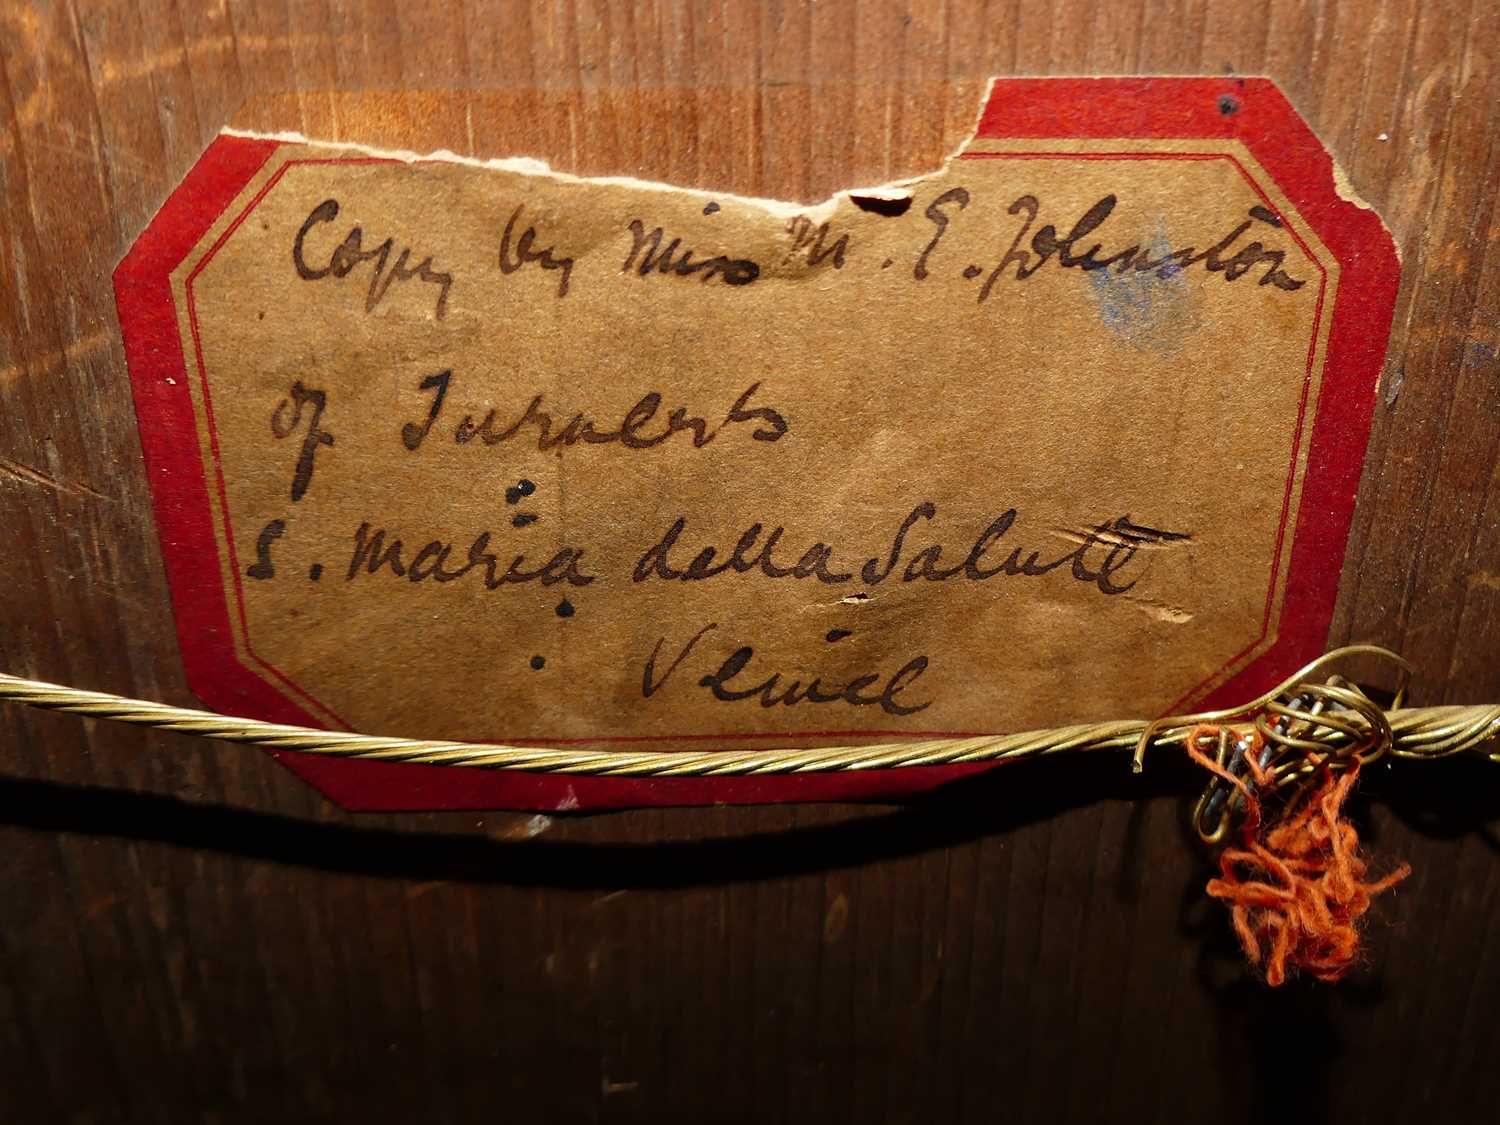 Copy by Miss M. E. Johnston
of Turner's
S. Maria della Salute
Venice